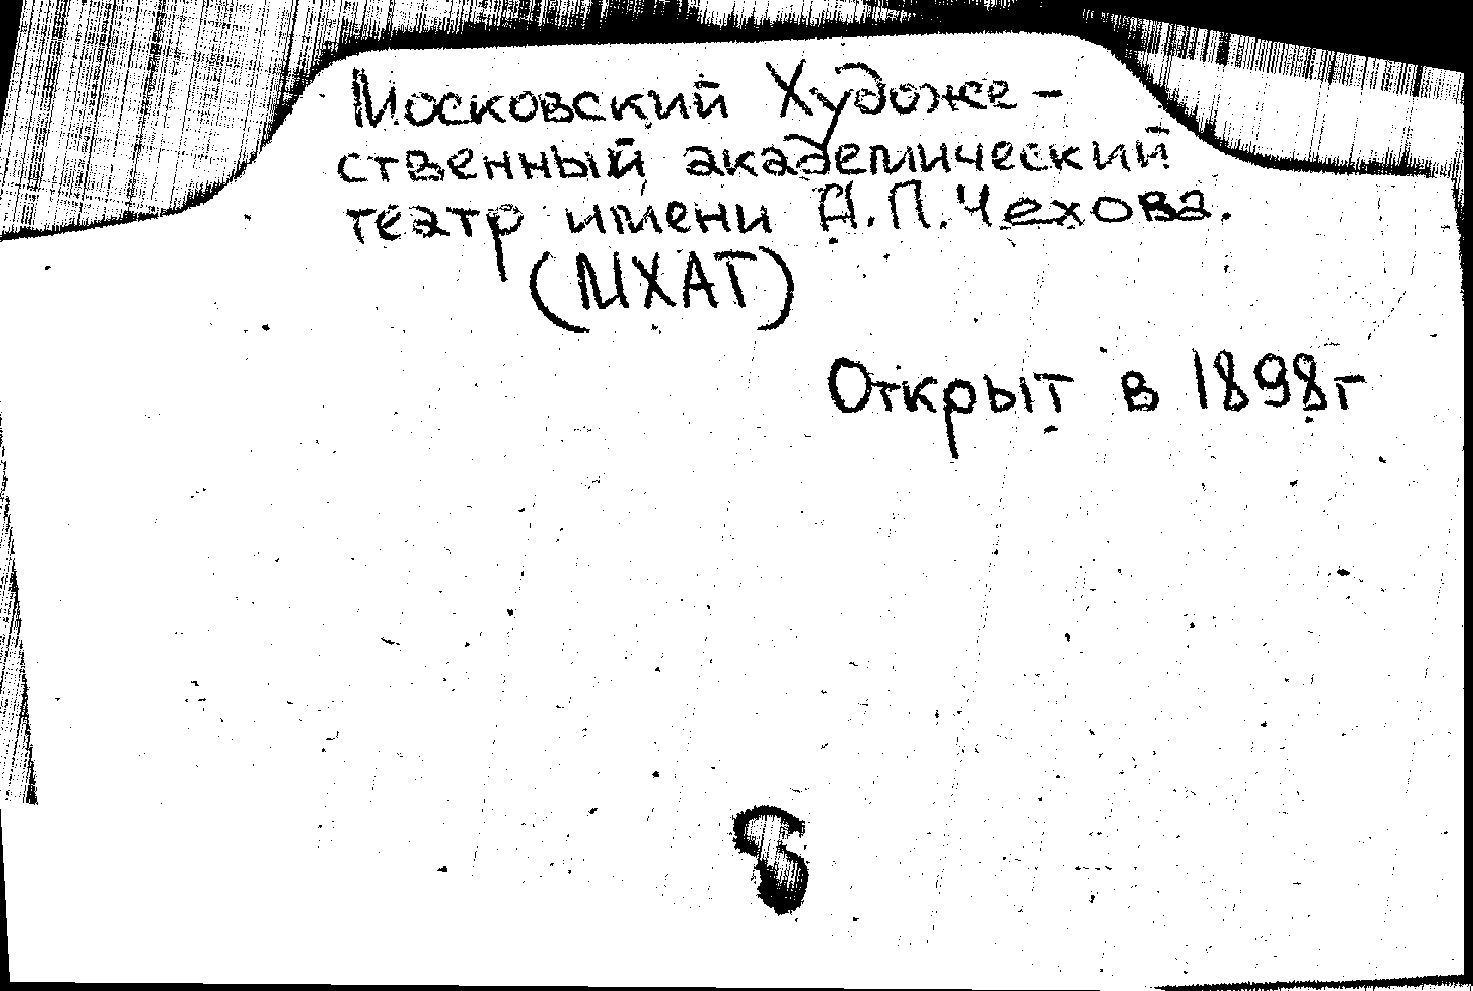 Московский Художе-
ственный академический
театр имени А.П.Чехова.
(МХАТ)
Открыт в 1898г